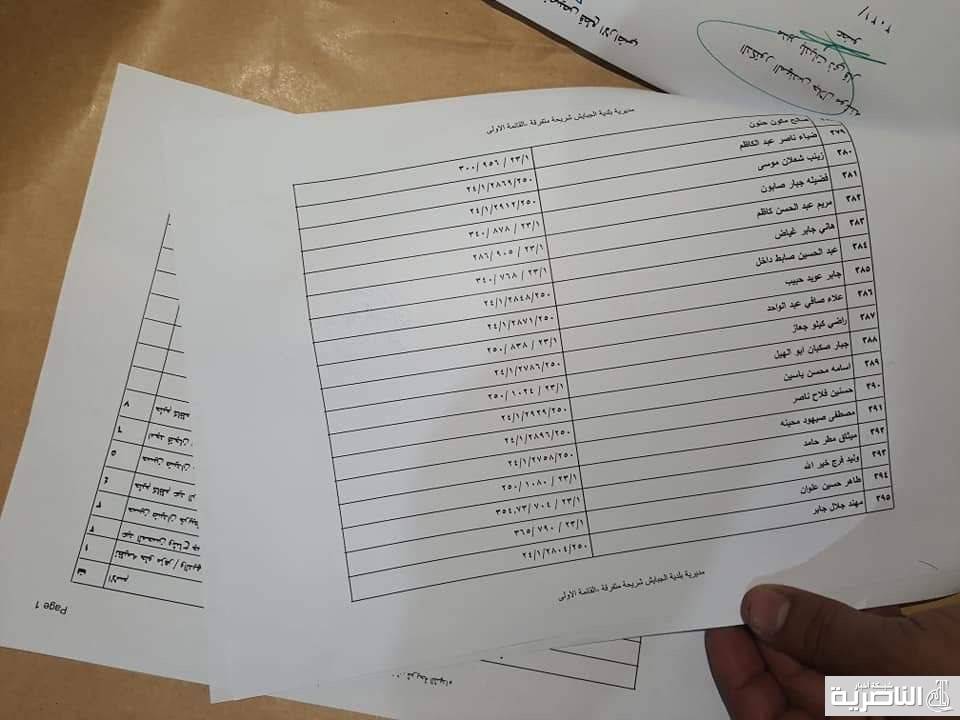 تخصيص قطع الاراضي
عضو
٢٠٢١/
مديرية بلدية الجبايش شريحة متفرقة -القائمة الاولى
صالح مكون حنون ٢٣/١ / ٩٥٦ /٣٠٠
٣٧٩ ضياء ناصر عبد الكاظم ٢٤/١/٢٨٦٩/٢٥٠
٣٨٠ زينب شعلان موسى ٢٤/١/٢٩١٢/٢٥٠
٣٨١ فضيله جبار صابون ٢٣/١ / ٨٧٨ /٣٤٠
٣٨٢ مريم عبد الحسن كاظم ٢٣/١ / ٩٠٥ /٢٨٦
٣٨٣ هاني جابر غياض ٢٣/١ / ٧٦٨ /٣٤٠
٣٨٤ عبد الحسين ضابط داخل ٢٤/١/٢٨٤٨/٢٥٠
٣٨٥ جابر عويد حبيب ٢٤/١/٢٨٧١/٢٥٠
٣٨٦ علاء صافي عبد الواحد ٢٣/١ / ٨٣٨ /٢٥٠
٣٨٧ راضي كيلو جهاز ٢٤/١/٢٧٨٦/٢٥٠
٣٨٨ جبار صكبان ابو الهيل ٢٣/١ / ١٠٢٤ /٢٥٠
٣٨٩ اسامه محسن ياسين ٢٤/١/٢٩٢٩/٢٥٠
٣٩٠ حسنين فلاح ناصر ٢٤/١/٢٨٩٦/٢٥٠
٣٩١ مصطفى صيهود محينه ٢٤/١/٢٧٥٨/٢٥٠
٣٩٢ ميثاق مطر حامد ٢٣/١ / ١٠٨٠ /٢٥٠
٣٩٣ وليد فرج خير الله ٢٣/١ / ٧٠٤ /٣٥٤,٧٣
٣٩٤ طاهر حسين علوان ٢٣/١ / ٧٩٠ /٣٦٥
٣٩٥ مهند جلال جابر ٢٤/١/٢٨٠٤/٢٥٠
مديرية بلدية الجبايش شريحة متفرقة -القائمة الاولى
Page 1
ت الاسم
١
٢
٣
٤
٥ حسين
٦
٧
شريحة الشهداء
شبكة اخبار
الناصرية